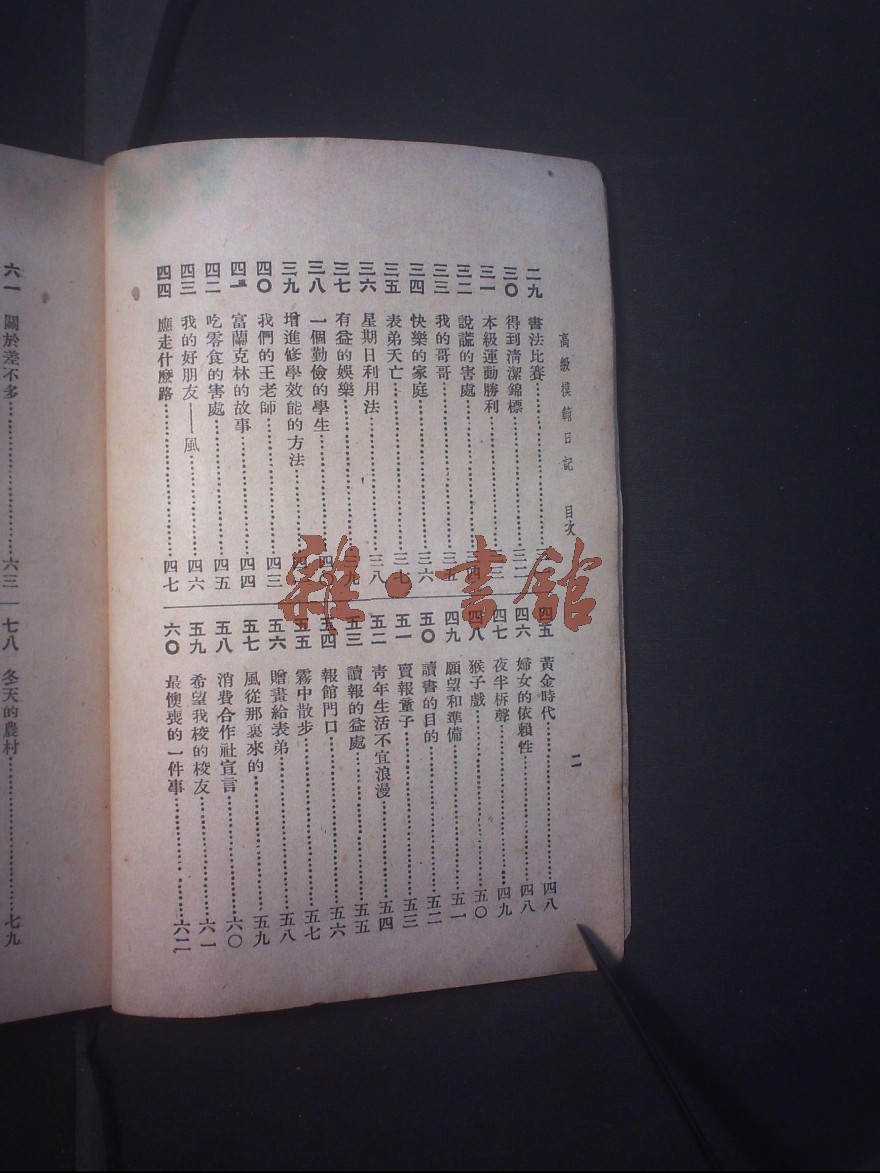 高級模範日記　目次
二
二九　書法比賽……三
三〇　得到清潔錦標……三二
三一　本級運動勝利……三三
三二　說謊的害處……三四
三三　我的哥哥……三五
三四　快樂的家庭……三六
三五　表弟夭亡……三七
三六　星期日利用法……三八
三七　有益的娛樂……三九
三八　一個勤儉的學生……四
三九　增進修學效能的方法……四
四〇　我們的王老師……四三
四一　富蘭克林的故事……四四
四二　吃零食的害處……四五
四三　我的好朋友——風……四六
四四　應走什麼路……四七
四五　黃金時代……四八
四六　婦女的依賴性……四八
四七　夜半柝聲……四九
四八　猴子戲……五〇
四九　願望和準備……五一
五〇　讀書的目的……五二
五一　賣報童子……五三
五二　青年生活不宜浪漫……五四
五三　讀報的益處……五五
五四　報館門口……五六
五五　霧中散步……五七
五六　贈畫給表弟……五八
五七　風從那裏來的……五九
五八　消費合作社宣言……六〇
五九　希望我校的校友……六一
六〇　最懊喪的一件事……六二
六一　關於差不多……六三
七八　冬天的農村……七九
雜·書館